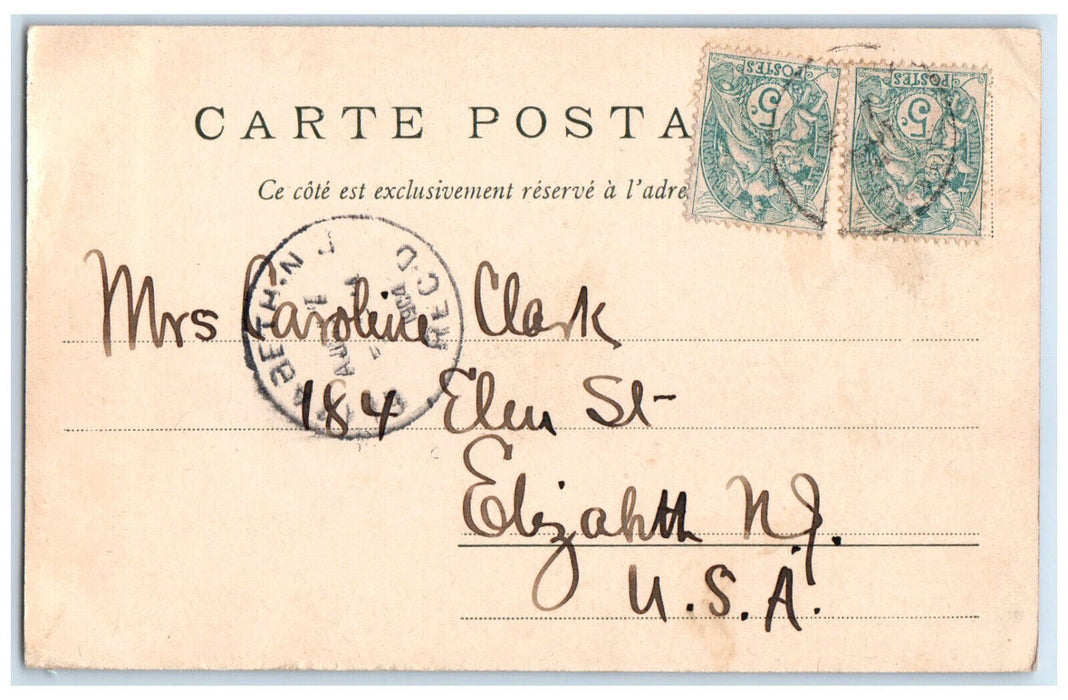 CARTE POSTA
Ce côté est exclusivement réservé à l'adre
POSTES
5
POSTES
5
ABETH. N J
REC'D
AUG
1904
Mrs Caroline Clark
184 Elm St-
Elizabeth N.J.
U.S.A.